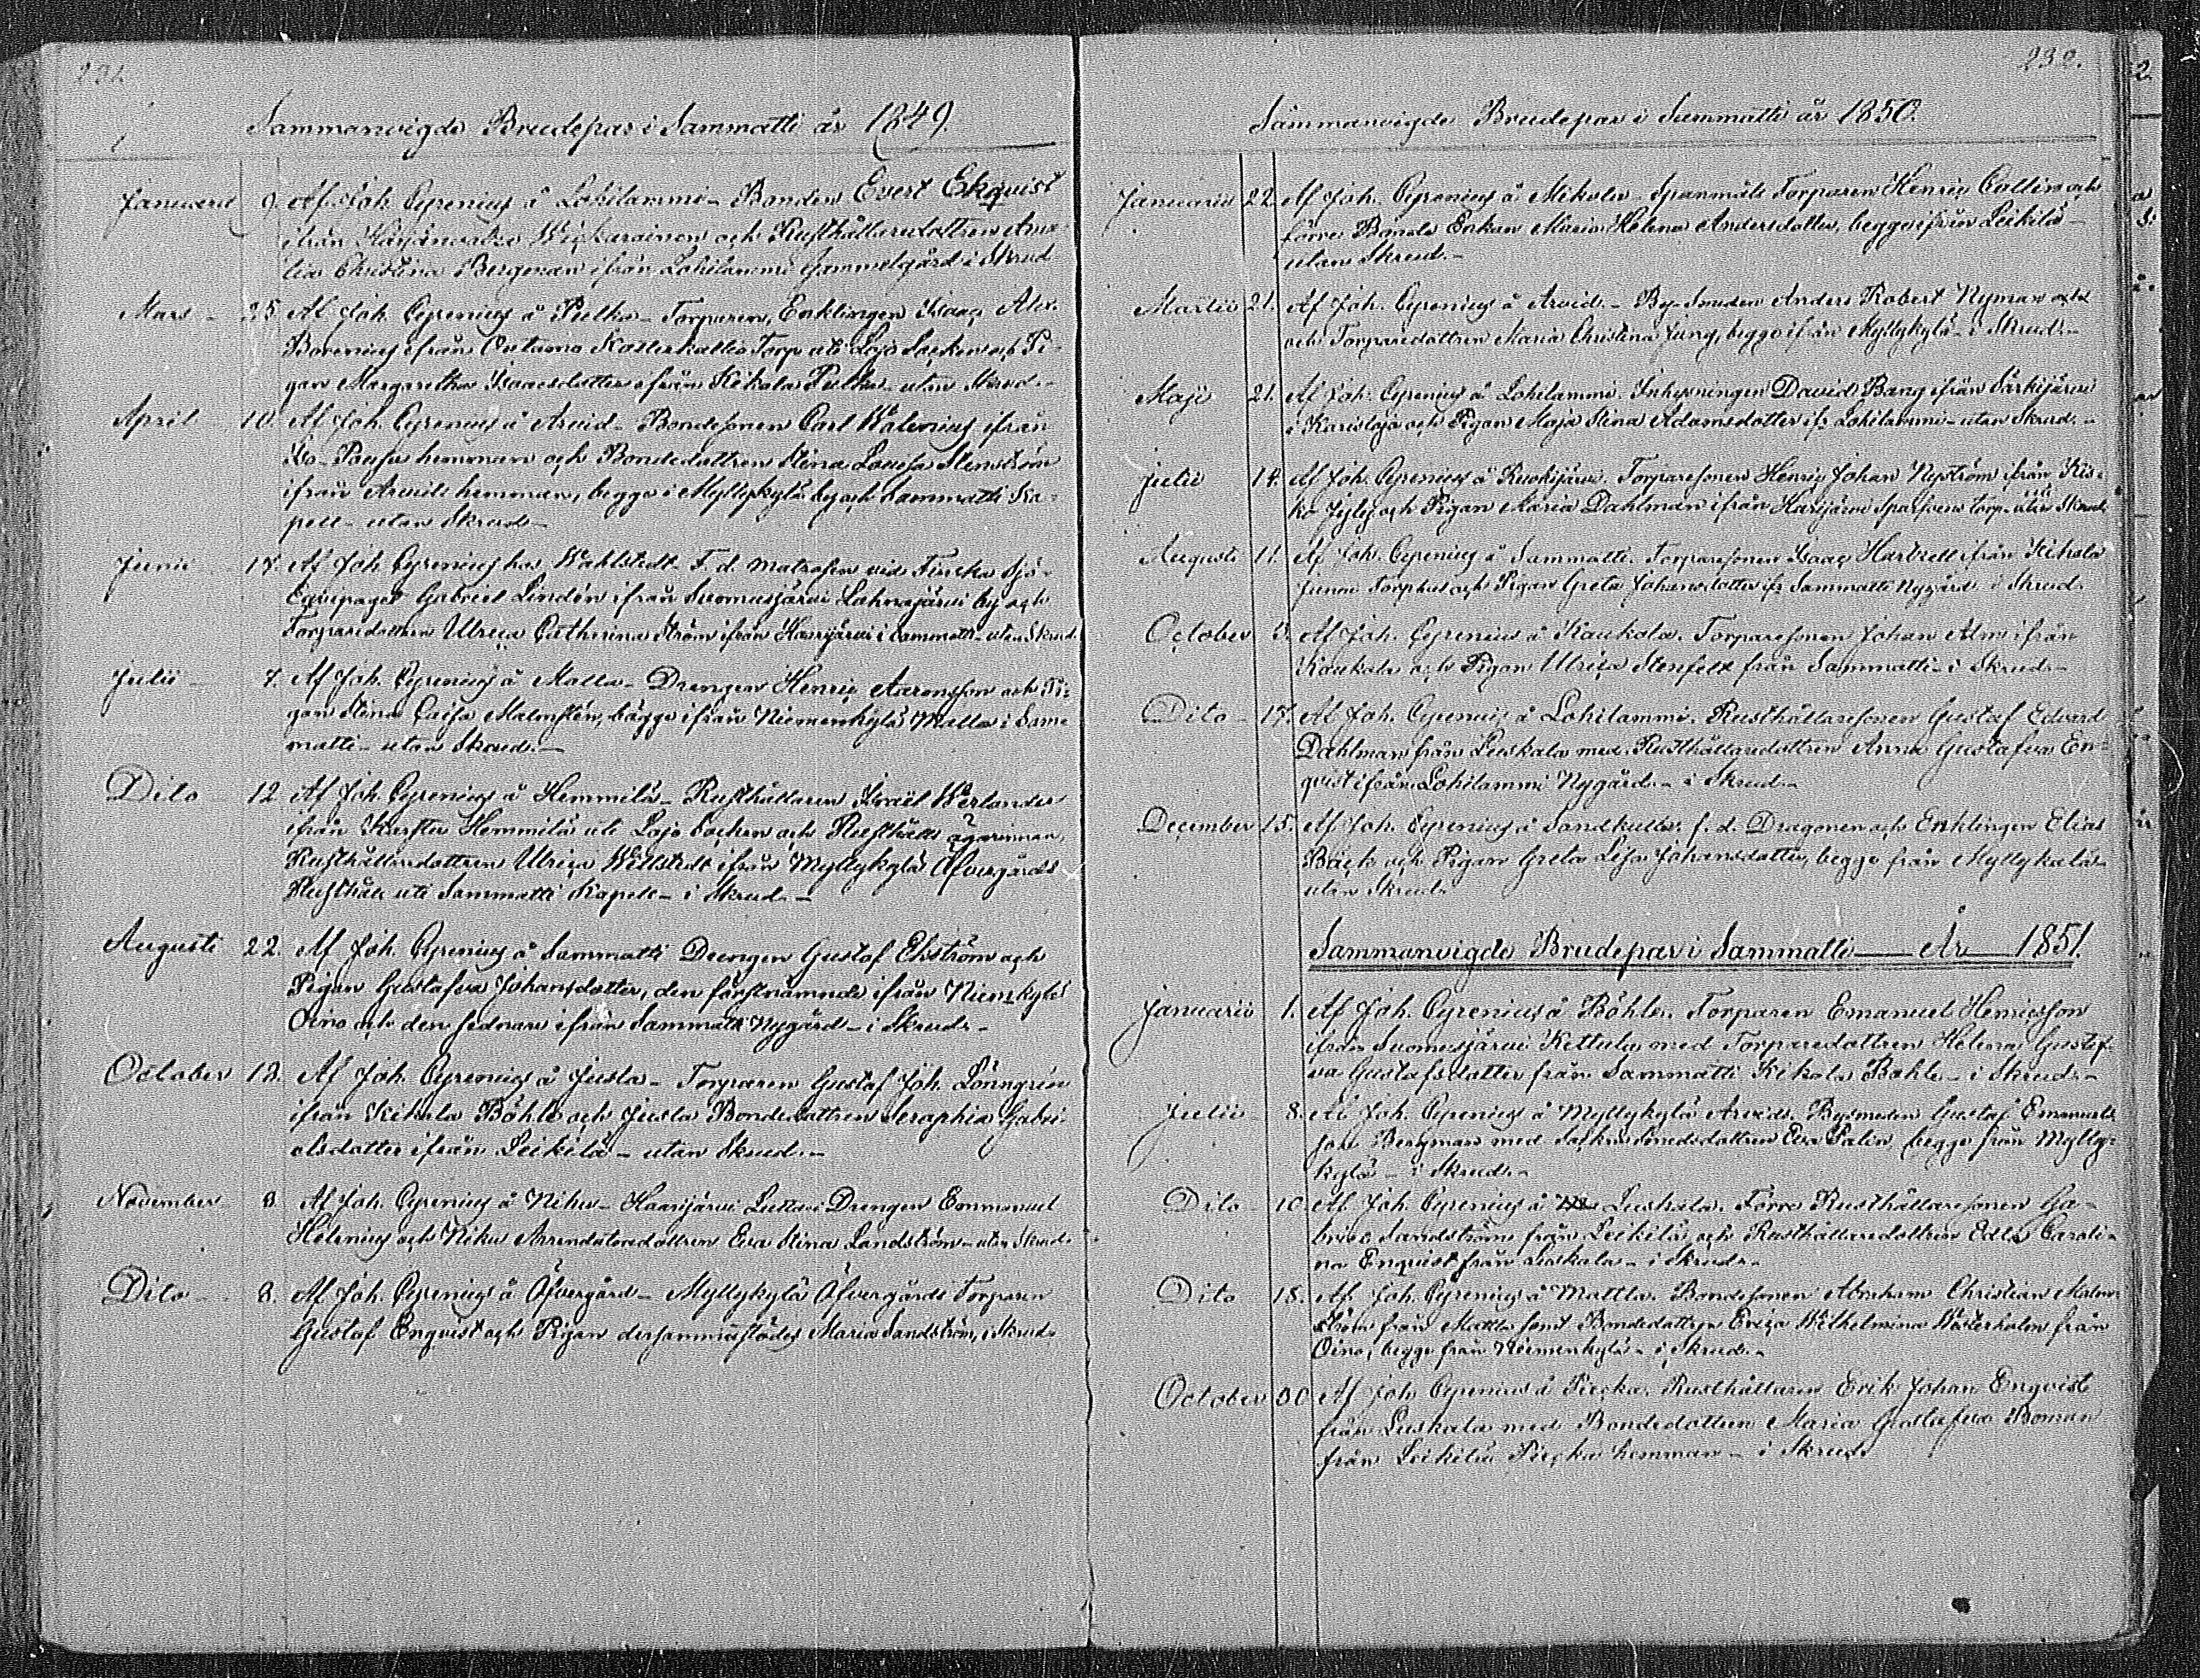 231.
Sammanvigde Brudepar i Sammatti år 1849.
Januari 9. Af Joh. Cyrenius å Lohilammi - Bonden Evert Ekqvist
ifrån och Rusthållaredottren Ama-
lia Christina Bergman ifrån Lohilammi Gammelgård i Skrud
Mars - 25 Af Joh. Cyrenius å Pulka - Torparen, Enklingen Isaac Alex.
Borenius ifrån Outamo Torp uti Lojo Socken och Pi-
gan Margaretha Isaacsdotter ifrån Kikala Pulka - utan Skrud. -
April 10. Af Joh. Cyrenius å Arvid - Bondesonen Carl Walenius ifrån
hemman och Bondedottren Stina Lovisa Stenström
ifrån Arvids hemman, begge i Myllykylä by och Sammatti Ka-
pell - utan Skrud -
Junii 15. Af Joh. Cyrenius hos Wahlstedt - F. d. Matrosen vid Finska Sjö-
Equipaget Gabriel Lindén ifrån Suomusjärvi Lahnajärvi by och
Torparedottren Ulrica Catharina Ström ifrån Haarijärvi i Sammatti - utan Skrud.
Julii - 7. Af Joh. Cyrenius å Malla - Drengen Henric Aaronsson och Pi-
gan Stina Caisa Malmstén, bägge ifrån Niemenkylä Malla i Sam-
matti - utan Skrud. -
Dito 12 Af Joh. Cyrenius å Hemmilä - Rusthållaren Israel Werlander
ifrån Karstu Hemmilä uti Lojo Socken och Rusthålls ägarinnan,
Rusthållaredottren Ulrica Willstedt ifrån Myllykylä Öfvergårds
Rusthåll uti Sammatti Kapell - i Skrud. -
Augusti 22. Af Joh. Cyrenius å Sammatti Drengen Gustaf Ekström och
Pigan Gustafva Johansdotter, den förstnämnde ifrån Niemkylä
Oino och den sednare ifrån Sammatti Nygård - i Skrud. -
October 12. Af Joh. Cyrenius å Jusla - Torparen Gustaf Joh. Lönngrén
ifrån Kikala Böhle och Jusla Bondedottren Seraphia Gabri-
elsdotter ifrån Leikilä - utan Skrud. -
November 8. Af Joh. Cyrenius å Niku - Haarijärvi Drengen Emmanuel
Helenius och Niku Arrendatoredottren Eva Stina Landström - utan Skrud.
Dito - 8. Af Joh. Cyrenius å Öfvergård - Myllykylä Öfvergårds Torparen
Gustaf Enqvist och Pigan dersammastädes Maria Sandström, i Skrud.
232.
Sammanvigde Brudepar i Sammatti år 1850.
Januarii 22. Af Joh. Cyrenius å Mikola. Spanmåls Torparen Henric Collin och
förre Bonde Enkan Maria Helena Andersdotter, begge ifrån Leikilä -
utan Skrud. -
Martii 21. Af Joh. Cyrenius å Arvid. - By-Smeden Anders Robert Nyman och
och Torparedottren Maria Christina Ljung, begge ifrån Myllykylä - i Skrud. -
Maji 21. Af Joh. Cyrenius å Lohilammi. Inhysningen David Bang ifrån Särkijärvi
i Karislojo och Pigan Maja Stina Adamsdotter ifr. Lohilammi - utan Skrud. -
Julii 14. Af Joh. Cyrenius å Ruokijärvi. Torparesonen Henric Johan Nyström ifrån Kis-
ko och Pigan Maria Dahlman ifrån Haarijärvi torp - utan Skrud.
Augusti 11. Af Joh. Cyrenius å Sammatti. Torparesonen Isaac Hartzell ifrån Kikala
och Pigan Greta Johansdotter ifr. Sammatti Nygård i Skrud.
October 5. Af Joh. Cyrenius å Kaukola. Torparesonen Johan Alm ifrån
Kaukola och Pigan Ulrica Stenfelt från Sammatti - i Skrud. -
Dito - 17. Af Joh. Cyrenius å Lohilammi. Rusthållaresonen Gustaf Edvard
Dahlman från Luskala med Rusthållaredottren Anna Gustafva En-
qvist ifrån Lohilammi Nygård. - i Skrud. -
December 15. Af Joh. Cyrenius å Sandkulla: f. d. Dragonen och Enklingen Elias
Bäck och Pigan Greta Lisa Johansdotter, begge från Myllykylä -
utan Skrud.
Sammanvigde Brudepar i Sammatti — År — 1851.
Januarii 1. Af Joh. Cyrenius å Böhle. Torparen Emanuel Henricsson
ifrån Suomusjärvi Kettula med Torparedottren Helena Gustaf-
va Gustafsdotter från Sammatti Kikala Böhle - i Skrud. -
Julii - 8. Af Joh. Cyrenius å Myllykylä Arvids. Bysmeden Gustaf Emanuels-
son Bergman med Sockne Smedsdottren Eva Palin, begge från Mylly-
kylä - i Skrud. -
Dito 10 Af Joh. Cyrenius å Luskala. Förre Rusthållaresonen Ga-
briel Sandström från Leikilä och Rusthållaredottren Edla Caroli-
na Enqvist från Luskala - i Skrud. -
Dito 18. Af Joh. Cyrenius å Mattla. Bondesonen Abraham Christian Malm-
ström från Mattla samt Bondedottren Erica Wilhelmina Westerholm från
Oino, begge från Niemenkylä - i Skrud. -
October 30 Af Joh. Cyrenius å Piecka. Rusthållaren Erik Johan Enqvist
från Luskala med Bondedottren Maria Gustafva Boman
från Leikilä Piecka hemman - i Skrud.